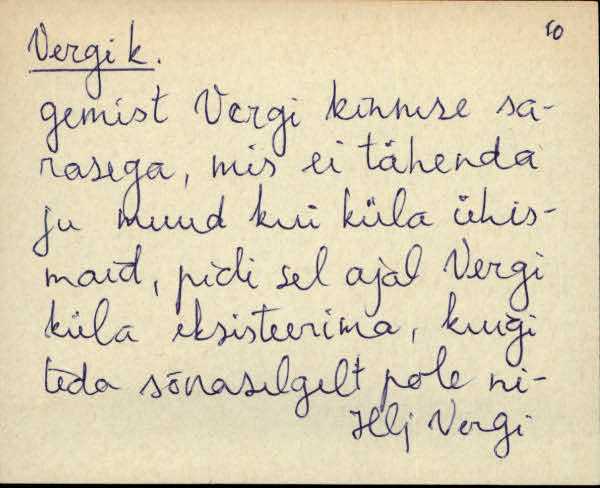 10
Vergi k.
gemist Vergi kinnise sa-
rasega, mis ei tähenda
ju muud kui küla ühis-
maid, pidi sel ajal Vergi
küla eksisteerima, kuigi
teda sõnaselgelt pole ni-
Hlj Vergi